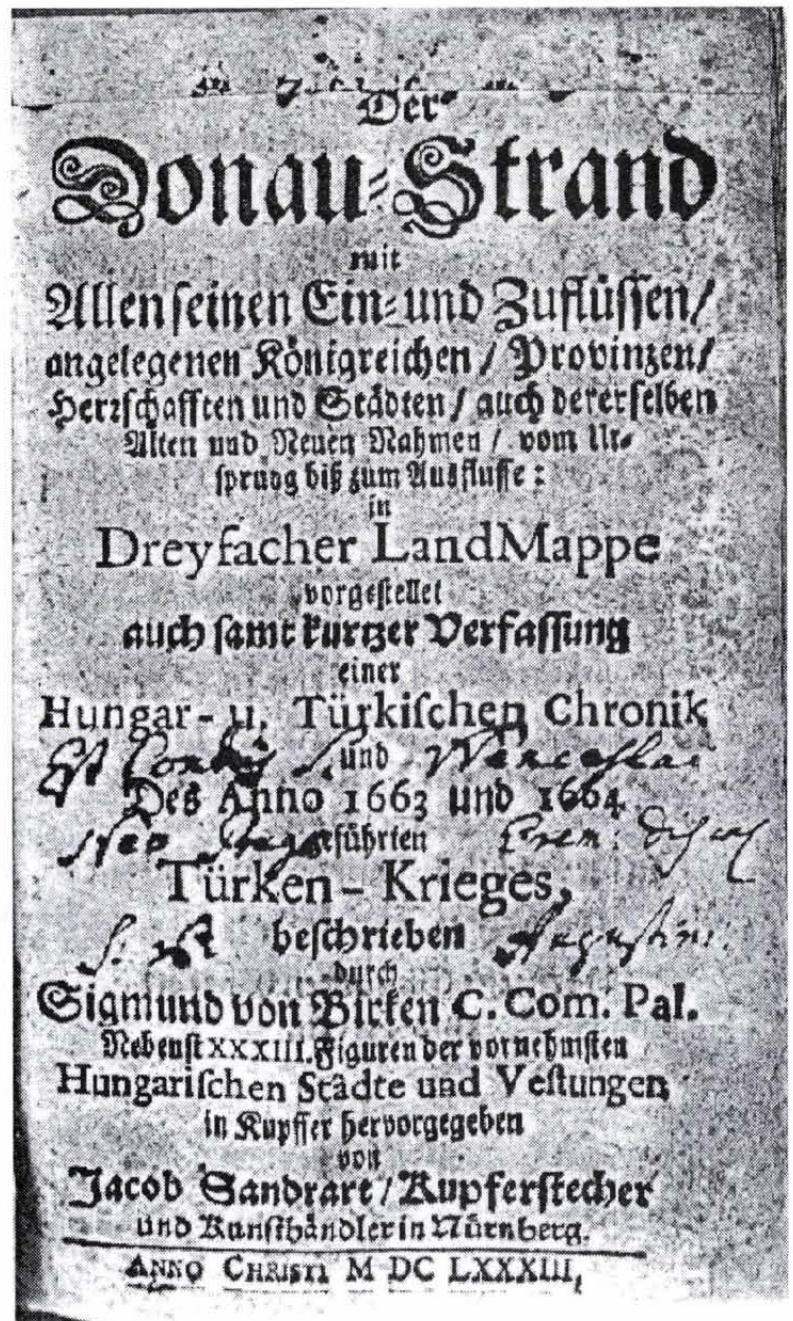 Der
Donau-Strand
mit
Allen seinen Ein- und Zuflüssen/
angelegenen Königreichen / Provinzen/
Herrschafften und Städten / auch dererselben
Alten und Neuen Nahmen / vom Ur-
sprung biß zum Ausflusse:
in
Dreyfacher LandMappe
vorgestellet
auch samt kurtzer Verfassung
einer
Hungar- u. Türkischen Chronik
und
Des Anno 1663 und 1664
geführten
Türken-Krieges,
beschrieben
durch
Sigmund von Birken C. Com. Pal.
Nebenst XXXIII. Figuren der vornehmsten
Hungarischen Städte und Vestungen
in Kupffer hervorgegeben
von
Jacob Sandrart / Kupferstecher
und Kunsthändler in Nürnberg.
ANNO CHRISTI M DC LXXXIII,